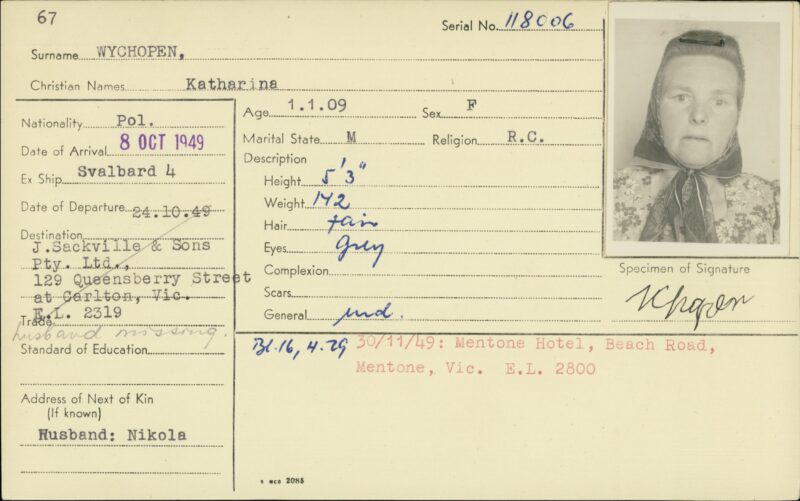 67
Serial No. 118006
Surname WYCHOPEN,
Christian Names Katharina
Nationality Pol.
Date of Arrival 8 OCT 1949
Ex Ship Svalbard 4
Date of Departure 24.10.49
Destination
J.Sackville & Sons
Pty. Ltd.,
129 Queensberry Street
at Carlton, Vic.
E.L. 2319
Trade
husband missing.
Standard of Education
Address of Next of Kin
(If known)
Husband: Nikola
Age 1.1.09 Sex F
Marital State M Religion R.C.
Description
Height 5' 3"
Weight 142
Hair fair
Eyes Grey
Complexion
Scars
General med.
Bl.16, H.29 30/11/49: Mentone Hotel, Beach Road,
Mentone, Vic. E.L. 2800
Specimen of Signature
MCD 2085